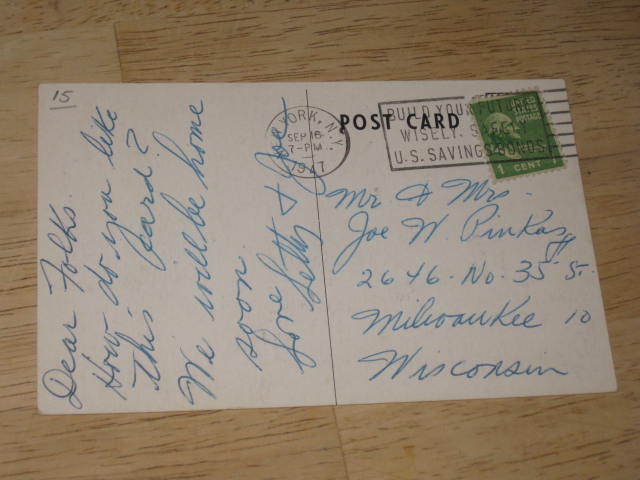 15
Dear Folks.
How do you like
this card?
We will be home
soon.
Love
Letty & Joe
YORK, N.Y.
SEP 16
7-PM
1947
POST CARD
BUILD YOUR FUTURE
WISELY. SAFELY
U.S. SAVINGS BONDS
UNITED
STATES
POSTAGE
1 CENT 1
Mr & Mrs.
Joe W. Pinkasy
2646-No. 35 St.
Milwaukee 10
Wisconsin